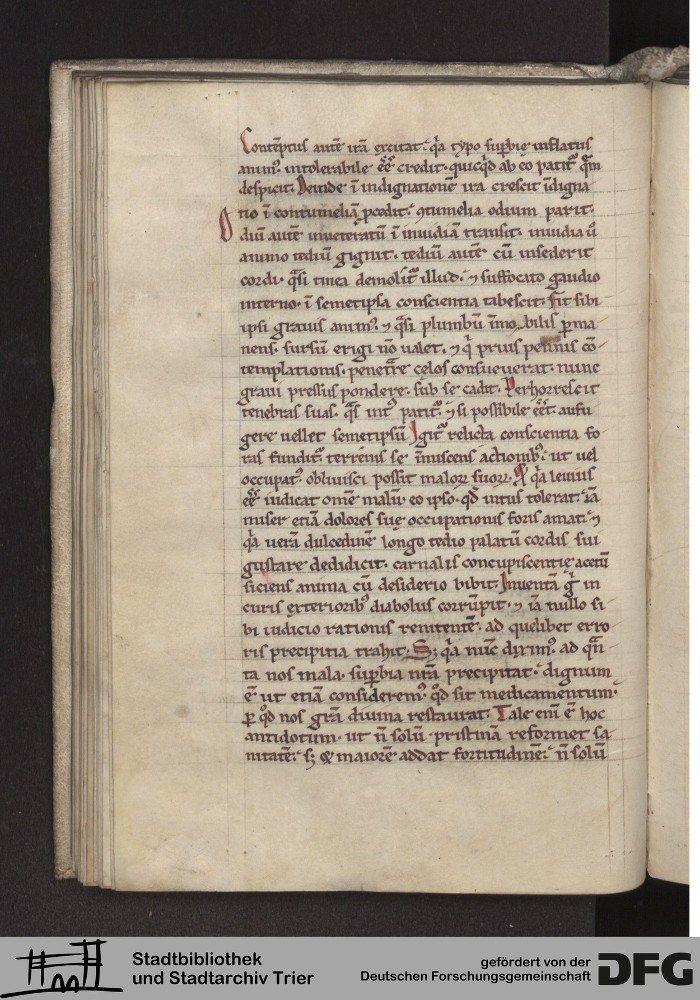 Contēptus autē irā excitat. q̄a typo suꝑbie inflatus
anim᷒. intolerabile ēē credit. quicq̇d ab eo patit᷑ quē
despicit. Deinde ī indignationē ira crescit īdigna
tio ī contumeliā ꝓcedit. ꝯtumelia odium parit.
Odiū autē inueteratū ī inuidiā transit. inuidia ū
animo tediū gignit. tediū autē cū insederit
cordi. q̄si tinea demolit᷑ illud. ⁊ suffocato gaudio
interno. ī semetipsa conscientia tabescit. Fit sibi
ipsi grauis anim᷒. ⁊ q̄si plumbū īmobilis ꝑma
nens. sursū erigi nō ualet. ⁊ q̄ prius pennis cō
templationis. penetrare celos consueuerat. nunc
graui pressus pondere. sub se cadit. Perhorrescit
tenebras suas. q̄s int᷒ patit᷑. ⁊ si possibile eēt. aufu
gere uellet semetipsū. Igit᷑ relicta conscientia fo
ras fundit᷑. terrenis se īmiscens actionib᷒. ut uel
occupat᷒ obliuisci possit maloꝝ suoꝝ. Et q̄a leuius
ēē iudicat omē malū. eo ipso. qd̄ intus tolerat. iā
miser etiā dolores sue occupationis foris amat. ⁊
q̄a uerā dulcedinē longo tedio palatū cordis sui
gustare dedidicit. carnalis concupiscentie acetū
siciens anima cū desiderio bibit. Inuentā g̊ in
curis exteriorib᷒ diabolus corrūpit. ⁊ iā nullo si
bi iudicio rationis renitentē. ad quelibet erro
ris precipitia trahit. Sꝫ q̄a nūc dixim᷒. ad q̄n
ta nos mala. suꝑbia nrā precipitat. dignum
ē. ut etiā considerem᷒. qd̄ sit medicamentum.
ꝑ qd̄ nos grā diuina restaurat. Tale eni ē hoc
antidotum. ut n̄ solū pristinā reformet sa
nitatē. sꝫ & maiorē addat fortitudinē. n̄ solū
Stadtbibliothek
und Stadtarchiv Trier
gefördert von der
Deutschen Forschungsgemeinschaft
DFG